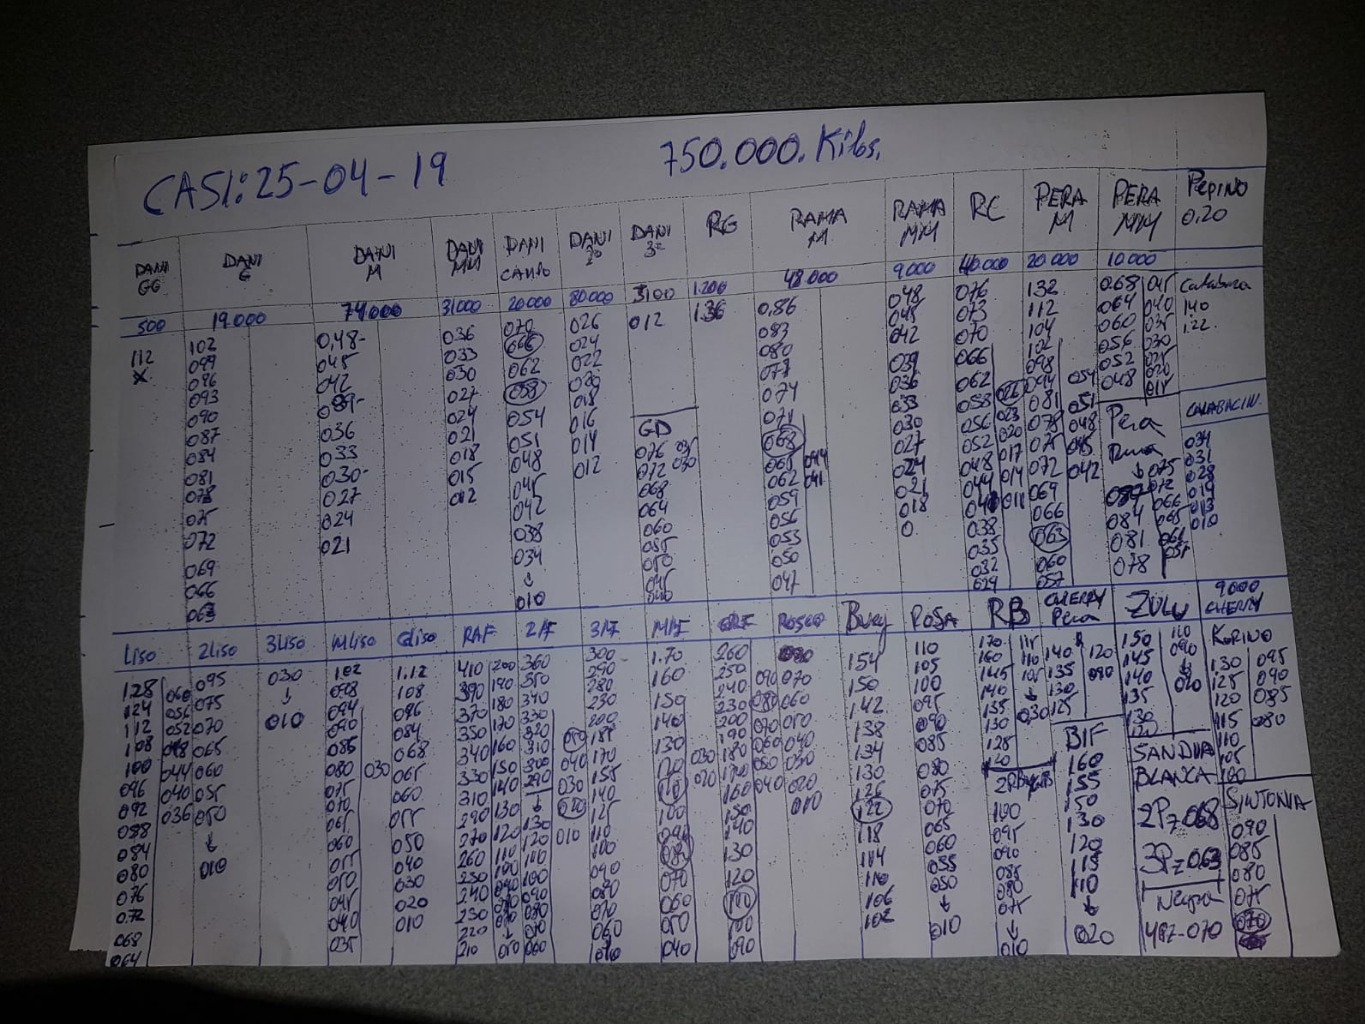 CASI: 25-04-19 750.000.Kilos.
DANI GG
DANI G
DANI M
DANI MM
DANI CANTO
DANI 2ª
DANI 3ª
RG
RAMA M
RAMA MM
RC
PERA M
PERA MM
Pepino 0,20
500 19.000 74.000 31000 20.000 80.000 3100 1.200 48.000 9.000 40.000 20.000 10.000
112
X
102
099
096
093
090
087
084
081
078
075
072
069
066
063
0,48-
045
042
039-
036
033
030-
027
024
021
036
033
030
027
024
021
018
015
012
070
066
062
058
054
051
048
045
042
038
034
↓
010
026
024
022
020
018
016
014
012
012
GD
076
072
068
064
060
055
050
045
040
035
030
1.36
0,86
083
080
077
074
071
068
065
062
059
056
053
050
047
044
041
048
045
042
039
036
033
030
027
024
021
018
0
076
073
070
066
062
058
056
052
048
044
041
038
035
032
029
026
023
020
017
014
011
132
112
104
102
098
094
081
078
075
072
069
066
063
060
057
054
051
048
045
042
068
064
060
056
052
048
045
040
035
030
025
020
015
Pera
Rama
↓
087
084
081
078
075
072
066
065
061
051
Calabaza
140
1.22
CALABACIN.
034
031
028
019
013
010
LISO 2LISO 3LISO MLISO GLISO RAF 2ªF 3ªF MªF GRF ROSCO Buey ROSA RB CHERRY Pera ZULU 9000 CHERRY
128
124
112
108
100
096
092
088
084
080
076
072
068
064
060
056
052
048
044
040
036
095
075
070
065
060
055
050
↓
010
030
↓
010
1.02
098
094
090
085
080
075
070
065
060
055
050
045
040
035
030
1.12
108
096
084
068
065
060
055
050
040
030
020
010
410
390
370
350
340
330
310
290
270
260
250
240
230
220
210
200
190
180
170
160
150
140
130
120
110
100
090
070
↓
010
360
350
340
330
320
310
300
290
↓
130
120
110
100
090
080
070
060
050
040
030
020
010
300
290
280
230
200
185
170
155
140
125
110
100
090
080
070
060
010
1.70
160
150
140
130
120
110
100
090
080
070
060
050
040
030
020
260
250
240
230
200
190
180
170
160
150
140
130
120
110
100
090
090
080
070
060
050
040
070
060
050
040
030
020
010
154
150
142
138
134
130
126
122
118
114
110
106
102
110
105
100
095
090
085
080
075
070
065
060
055
050
↓
010
170
160
145
140
135
130
125
120
115
110
105
↓
030
100
095
090
085
080
075
↓
010
140
135
130
125
120
090
BIF
160
155
150
130
120
115
110
↓
020
150
145
140
135
130
120
110
090
↓
020
SANDIIA
BLANCA
2Pz 068
3Pz 063
Negra
4PZ-070
KORINO
130
125
120
115
110
105
100
095
090
085
080
SINTONIA
090
085
080
075
070